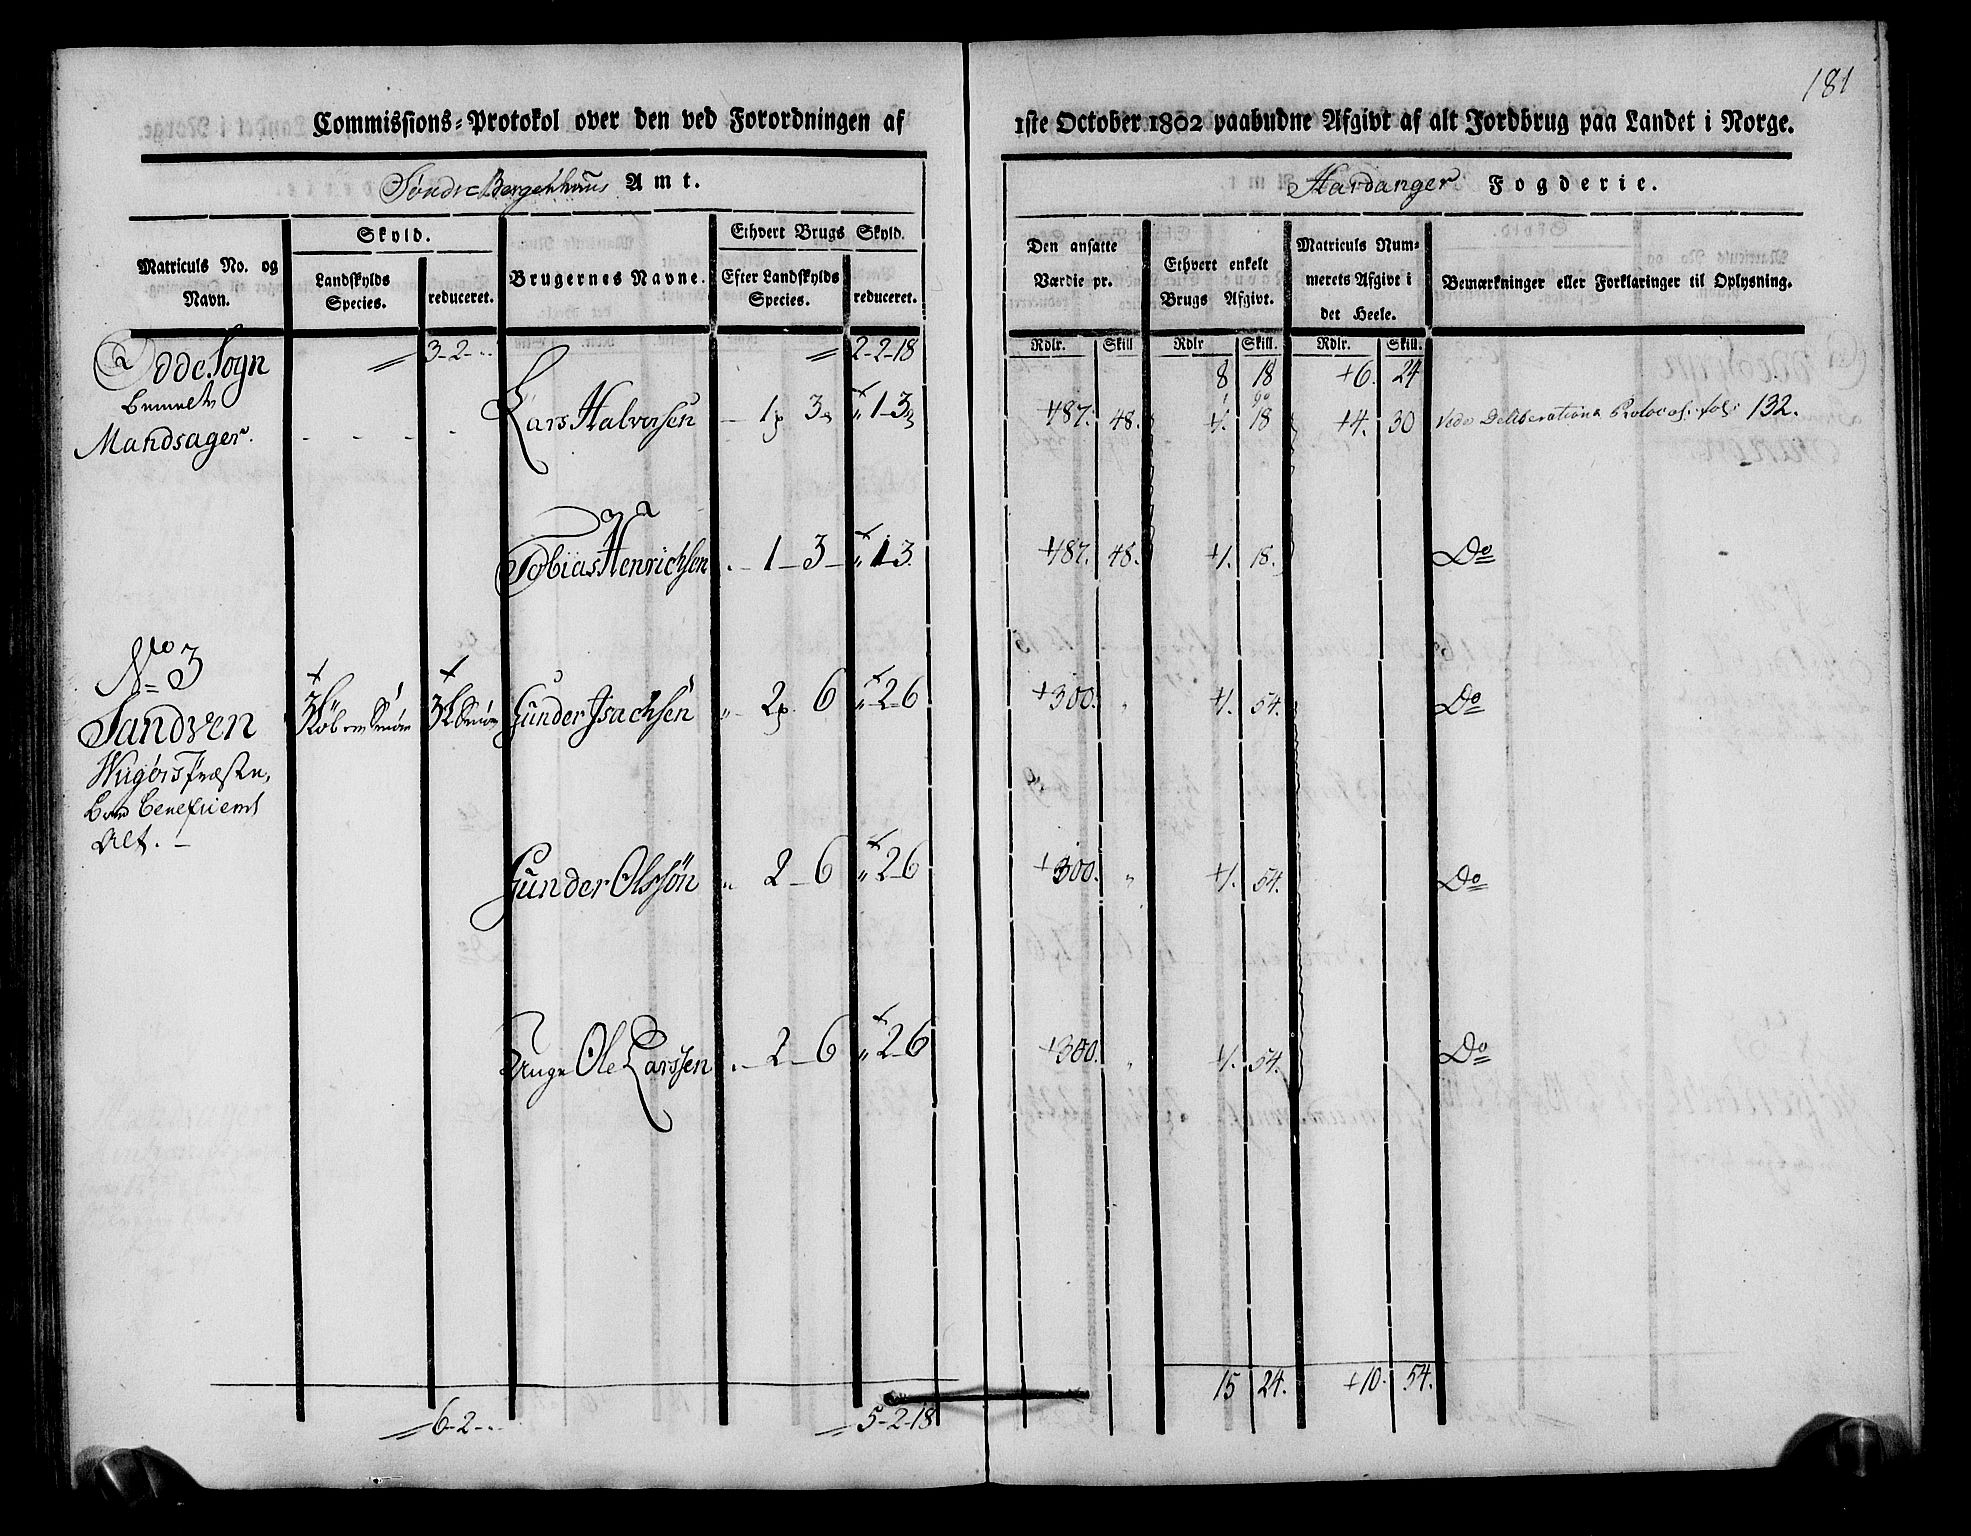 181
Commissions-Protokol over den ved Forordningen af 1ste October 1802 paabudne Afgivt af alt Jordbrug paa Landet i Norge.
Søndre Bergenhuus Amt. Hardanger Fogderie.
Matriculs No. og Navn.
Skyld.
Landskylds Species.
reduceret.
Brugernes Navne.
Ethvert Brugs Skyld.
Efter Landskylds Species.
reduceret.
Den ansatte Værdie pr.
Ethvert enkelt Brugs Afgivt.
Matriculs Nummerets Afgivt i det Heele.
Bemærkninger eller Forklaringer til Oplysning.
Rdlr. Skill Rdlr Skill. Rdlr. Skill.
Odde Sogn 3-2-.. 2-2-18 8 18 +6. 24
bemelte
Mandsager. Lars Halvorsen 1 p 3 1-3 +87. 48. 1 90 +4. 30 Vide Deliberations Protocol. fol. 132.
+1. 18
Tobias Henrichsen 1-3 1-3. +87. 48. +1. 18. Do
No 3
Sandven 3 3 Gunder Isachsen 2 p. 6 2-6 +300. " +1. 54. Do
Beneficeret
Alt.
Gunder Olssøn 2-6 2-6 +300. " +1. 54. Do
Unge Ole Larssen 2-6 2-6 +300. " +1. 54. Do
6-2-.. 5-2-18 15 24. +10. 54.